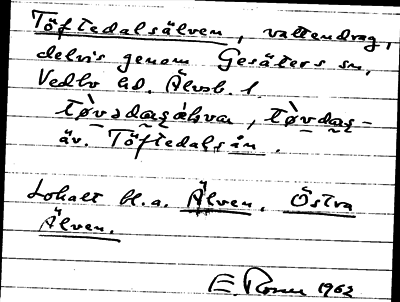 Töftedalsälven, vattendrag,
delvis genom Gesäters sn,
Vedbo hd. Älvsb. l.
tø̀vədas̱a̱ḷva, tø̀vdas̱-
äv. Töftedalsån.
Lokalt bl.a. Älven. Östra
Älven.
E. 1962